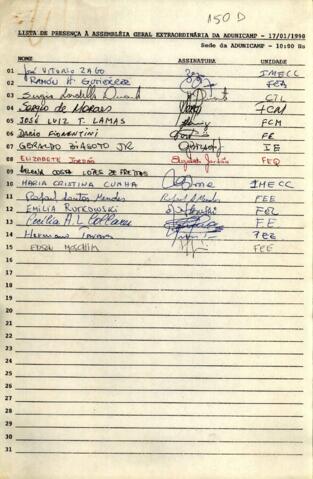 150 D
LISTA DE PRESENÇA À ASSEMBLÉIA GERAL EXTRAORDINÁRIA DA ADUNICAMP - 17/01/1990
Sede da ADUNICAMP - 10:00 Hs
NOME ASSINATURA UNIDADE
01 José VITORIO ZAGO IMECC
02 RAMÓN H GUTIERREZ FEA
03
04 Sérgio de Moraes FCM
05 JOSÉ LUIZ T. LAMAS FCM
06 DARIO FIORENTINI FE
07 GERALDO BIASOTO JR IE
08 ELIZABETE JORDÃO Elizabete Jordão FEQ
09 HELENA COSTA LOPES DE FREITAS
10 MARIA CRISTINA CUNHA IMECC
11 Rafael Santos Mendes Rafael S Mendes FEE
12 EMÍLIA RUTKOWSKI
13 Cecília A. L. Collares FE
14 Hermano Tavares FEE
15 EDSON MOSCHIM FEE
16
17
18
19
20
21
22
23
24
25
26
27
28
29
30
31